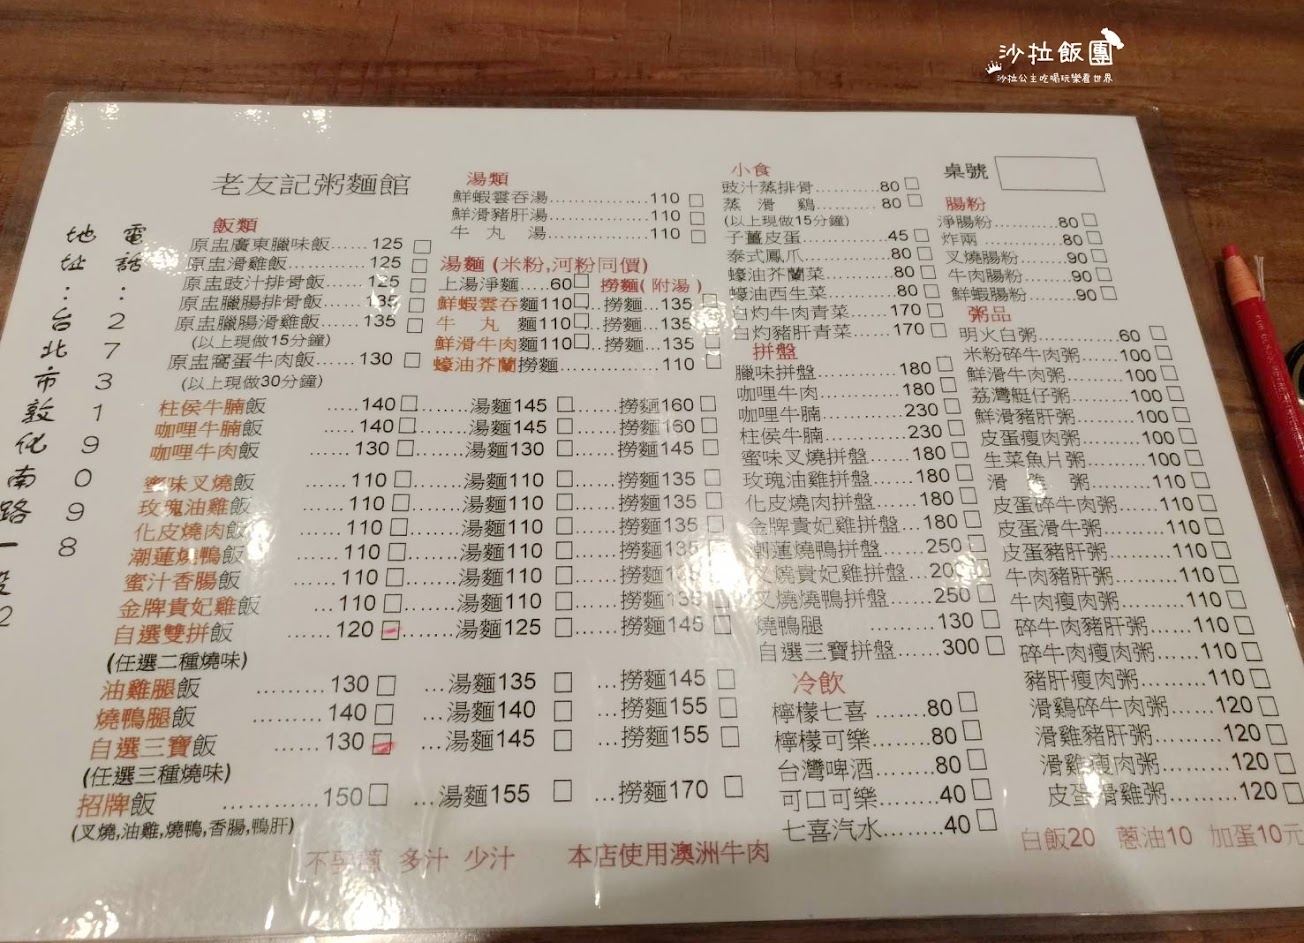 沙拉飯團
沙拉公主吃喝玩樂看世界
老友記粥麵館
電話：27319098
地址：台北市敦化南路一段2
飯類
原盅廣東臘味飯......125
原盅滑雞飯............125
原盅豉汁排骨飯......125
原盅臘腸排骨飯......135
原盅臘腸滑雞飯......135
(以上現做15分鐘)
原盅窩蛋牛肉飯......130
(以上現做30分鐘)
柱侯牛腩飯 .....140 ........湯麵145 ......撈麵160
咖哩牛腩飯 .....140 ........湯麵145 ......撈麵160
咖哩牛肉飯 .....130 ........湯麵130 ......撈麵145
蜜味叉燒飯 ...110 ........湯麵110 ......撈麵135
玫瑰油雞飯 ...110 ........湯麵110 ......撈麵135
化皮燒肉飯 ...110 ........湯麵110 ......撈麵135
潮蓮燒鴨飯 ...110 ........湯麵110 ......撈麵135
蜜汁香腸飯 ...110 ........湯麵110 ......撈麵135
金牌貴妃雞飯 ...110 ........湯麵110 ......撈麵135
自選雙拼飯 ......120 ........湯麵125 ......撈麵145
(任選二種燒味)
油雞腿飯 .........130 ...湯麵135 ...撈麵145
燒鴨腿飯 .........140 ...湯麵140 ...撈麵155
自選三寶飯 ......130 ...湯麵145 ...撈麵155
(任選三種燒味)
招牌飯 ............150 ...湯麵155 ...撈麵170
(叉燒,油雞,燒鴨,香腸,鴨肝)
多汁 少汁 本店使用澳洲牛肉
湯類
鮮蝦雲吞湯..................110
鮮滑豬肝湯..................110
牛 丸 湯..................110
湯麵 (米粉,河粉同價)
上湯淨麵....60 撈麵( 附湯 )
鮮蝦雲吞麵110 ..撈麵...135
牛 丸 麵110 ...撈麵...135
鮮滑牛肉麵110 ...撈麵...135
蠔油芥蘭撈麵..................110
小食
豉汁蒸排骨...........80
蒸 滑 鷄...........80
(以上現做15分鐘)
子薑皮蛋.............45
泰式鳳爪.............80
蠔油芥蘭菜..........80
蠔油西生菜..........80
白灼牛肉青菜......170
白灼豬肝青菜......170
拼盤
臘味拼盤............180
咖哩牛肉............180
咖哩牛腩............230
柱侯牛腩............230
蜜味叉燒拼盤......180
玫瑰油雞拼盤......180
化皮燒肉拼盤......180
金牌貴妃雞拼盤...180
潮蓮燒鴨拼盤......250
叉燒貴妃雞拼盤...200
叉燒燒鴨拼盤......250
燒鴨腿 ............130
自選三寶拼盤......300
冷飲
檸檬七喜 .......80
檸檬可樂........80
台灣啤酒........80
可口可樂........40
七喜汽水........40
桌號
腸粉
淨腸粉...........80
炸兩 ............80
叉燒腸粉........90
牛肉腸粉........90
鮮蝦腸粉........90
粥品
明火白粥..................60
米粉碎牛肉粥.........100
鮮滑牛肉粥............100
荔灣艇仔粥............100
鮮滑豬肝粥............100
皮蛋瘦肉粥............100
生菜魚片粥............100
滑 雞 粥............110
皮蛋碎牛肉粥.........110
皮蛋滑牛粥............110
皮蛋豬肝粥............110
牛肉豬肝粥............110
牛肉瘦肉粥............110
碎牛肉豬肝粥.........110
碎牛肉瘦肉粥.........110
豬肝瘦肉粥............110
滑鷄碎牛肉粥.........120
滑雞豬肝粥............120
滑雞瘦肉粥............120
皮蛋滑雞粥............120
白飯20 蔥油10 加蛋10元